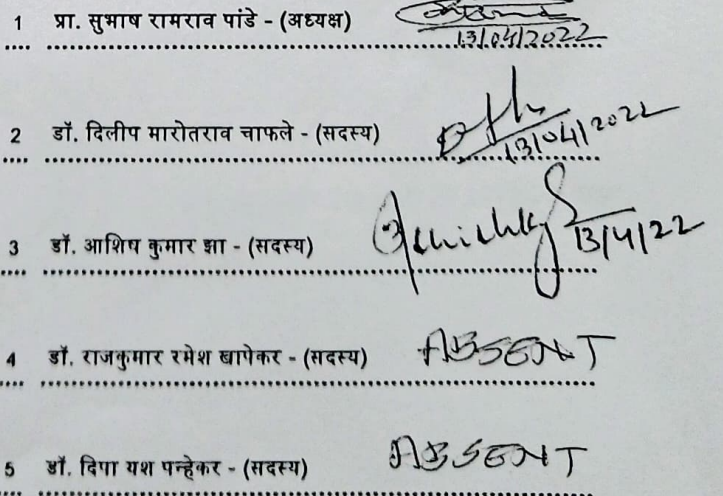 1 प्रा. सुभाष रामराव पांडे - (अध्यक्ष)
13/04/2022
2 डॉ. दिलीप मारोतराव चाफले - (सदस्य)
13/04/2022
3 डॉ. आशिष कुमार झा - (सदस्य) 13/4/22
4 डॉ. राजकुमार रमेश खापेकर - (सदस्य) ABSENT
5 डॉ. दिपा यश पन्हेकर - (सदस्य) ABSENT